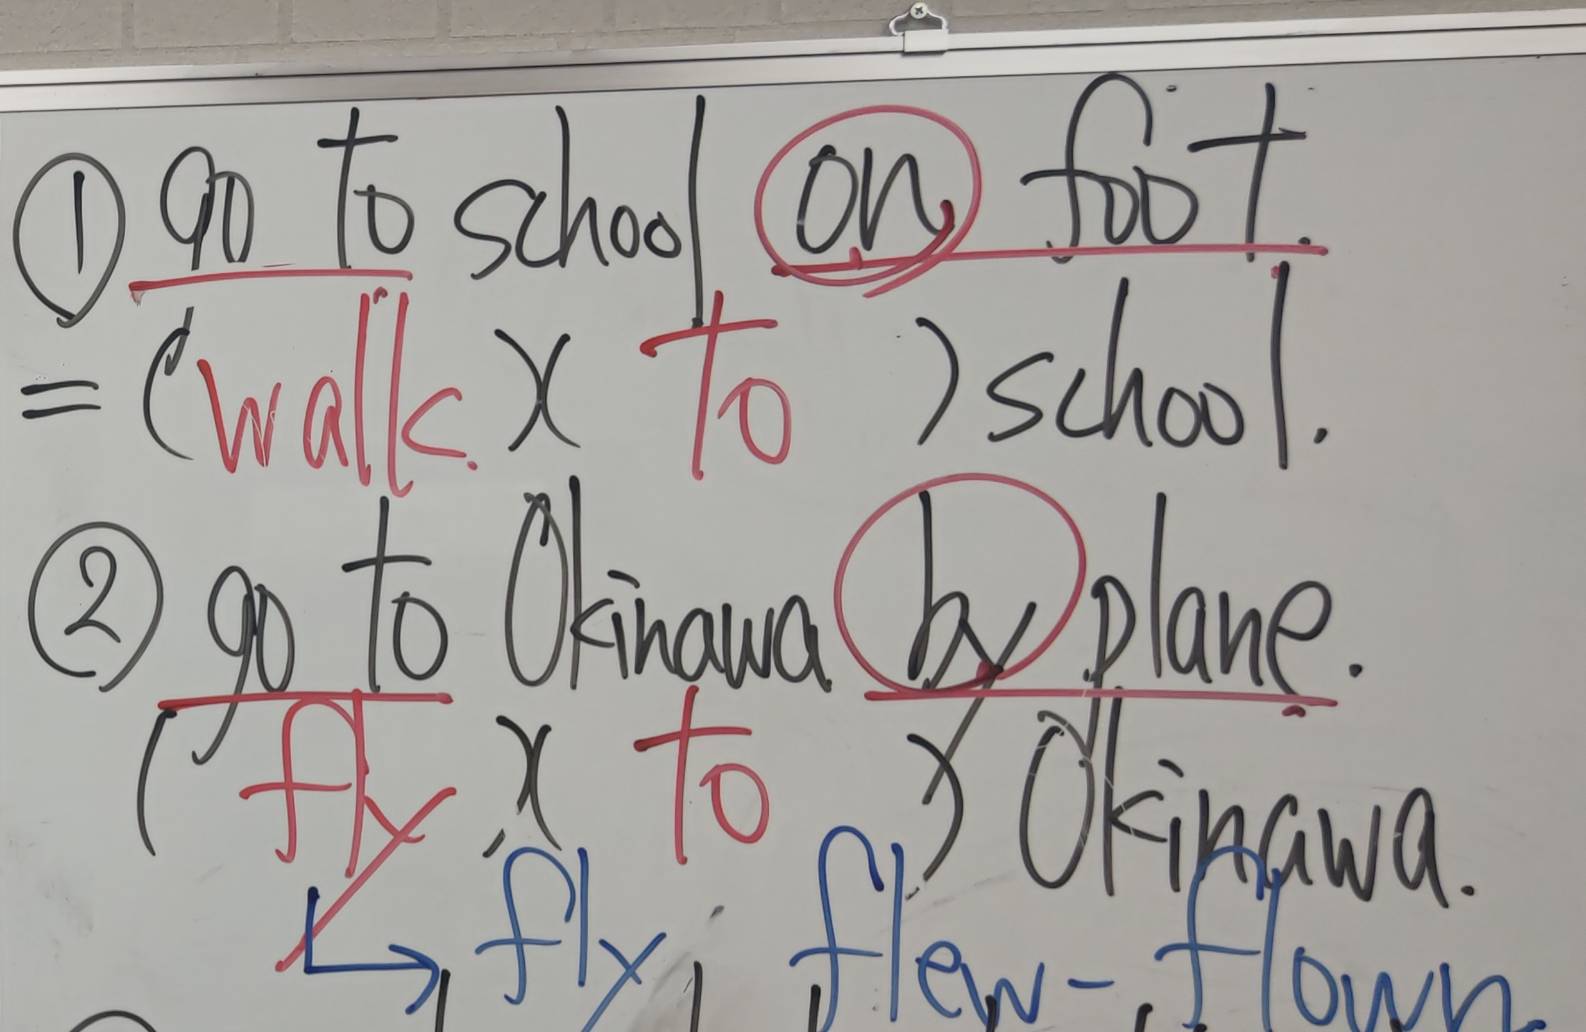 ① go to school on foot.
= (walk)(to) school.
② go to Okinawa by plane.
(fly)(to) Okinawa.
↳ fly, flew - flown